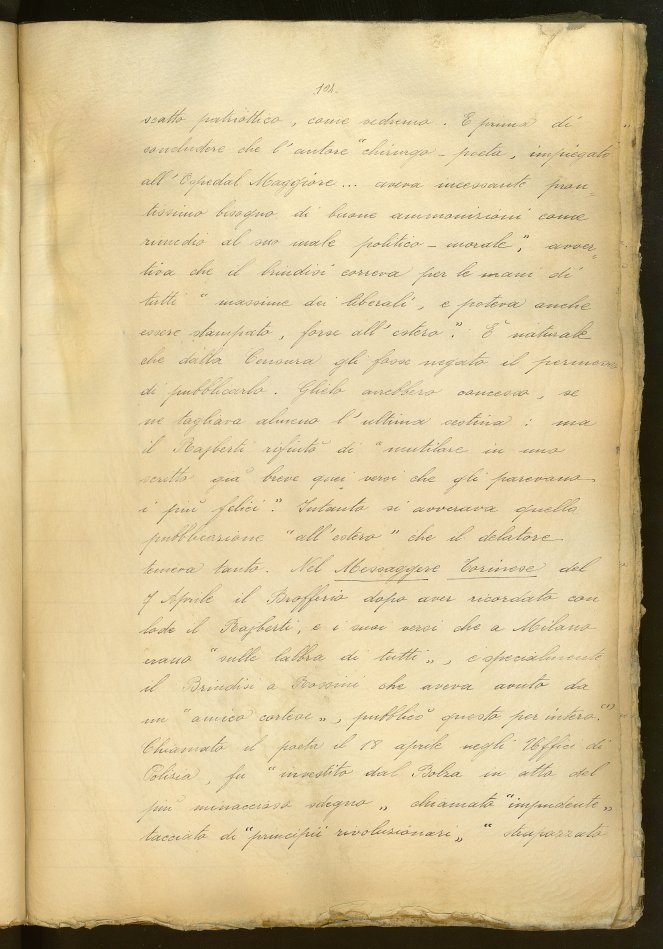 124.
scatto patriottico, come vedremo. E prima di
concludere che l'autore "chirurgo-poeta, impiegato
all'Ospedal Maggiore... aveva incessante pron-
tissimo bisogno di buone ammonizioni come
rimedio al suo male politico-morale", avver-
tiva che il brindisi correva per le mani di
tutti "massime dei liberali, e poteva anche
essere stampato, forse all'estero". È naturale
che dalla Censura gli fosse negato il permesso
di pubblicarlo. Glielo avrebbero concesso, se
ne tagliava almeno l'ultima sestina: ma
il Rajberti rifiutò di "mutilare in uno
scritto già breve quei versi che gli parevano
i più felici". Intanto si avverava quella
pubblicazione "all'estero" che il delatore
temeva tanto. Nel Messaggere Torinese del
7 Aprile il Brofferio dopo aver ricordato con
lode il Rajberti, e i suoi versi che a Milano
erano "sulle labbra di tutti„, e specialmente
il Brindisi a Rossini che aveva avuto da
un "amico cortese„, pubblicò questo per intero.(1)
Chiamato il poeta il 18 aprile negli Uffici di
Polizia, fu "investito dal Bolza in atto del
più minaccioso sdegno„ chiamato "impudente„
tacciato di "principii rivoluzionari„, "strapazzato